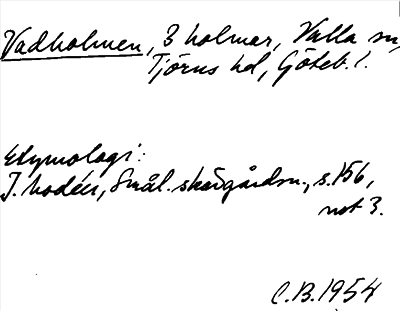 Vadholmen, 3 holmar, Valla sn,
Tjörns hd, Göteb. l.
Etymologi:
J. Modéer, Smål. skärgårdsn., s. 156,
not 3.
C.B. 1954